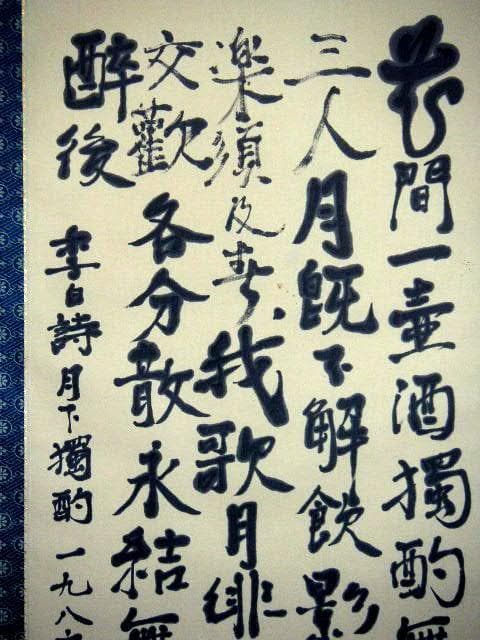 花間一壺酒獨酌無
三人月既不解飲影
楽須及春我歌月徘
交歡各分散永結無
醉後
李白詩月下獨酌一九八